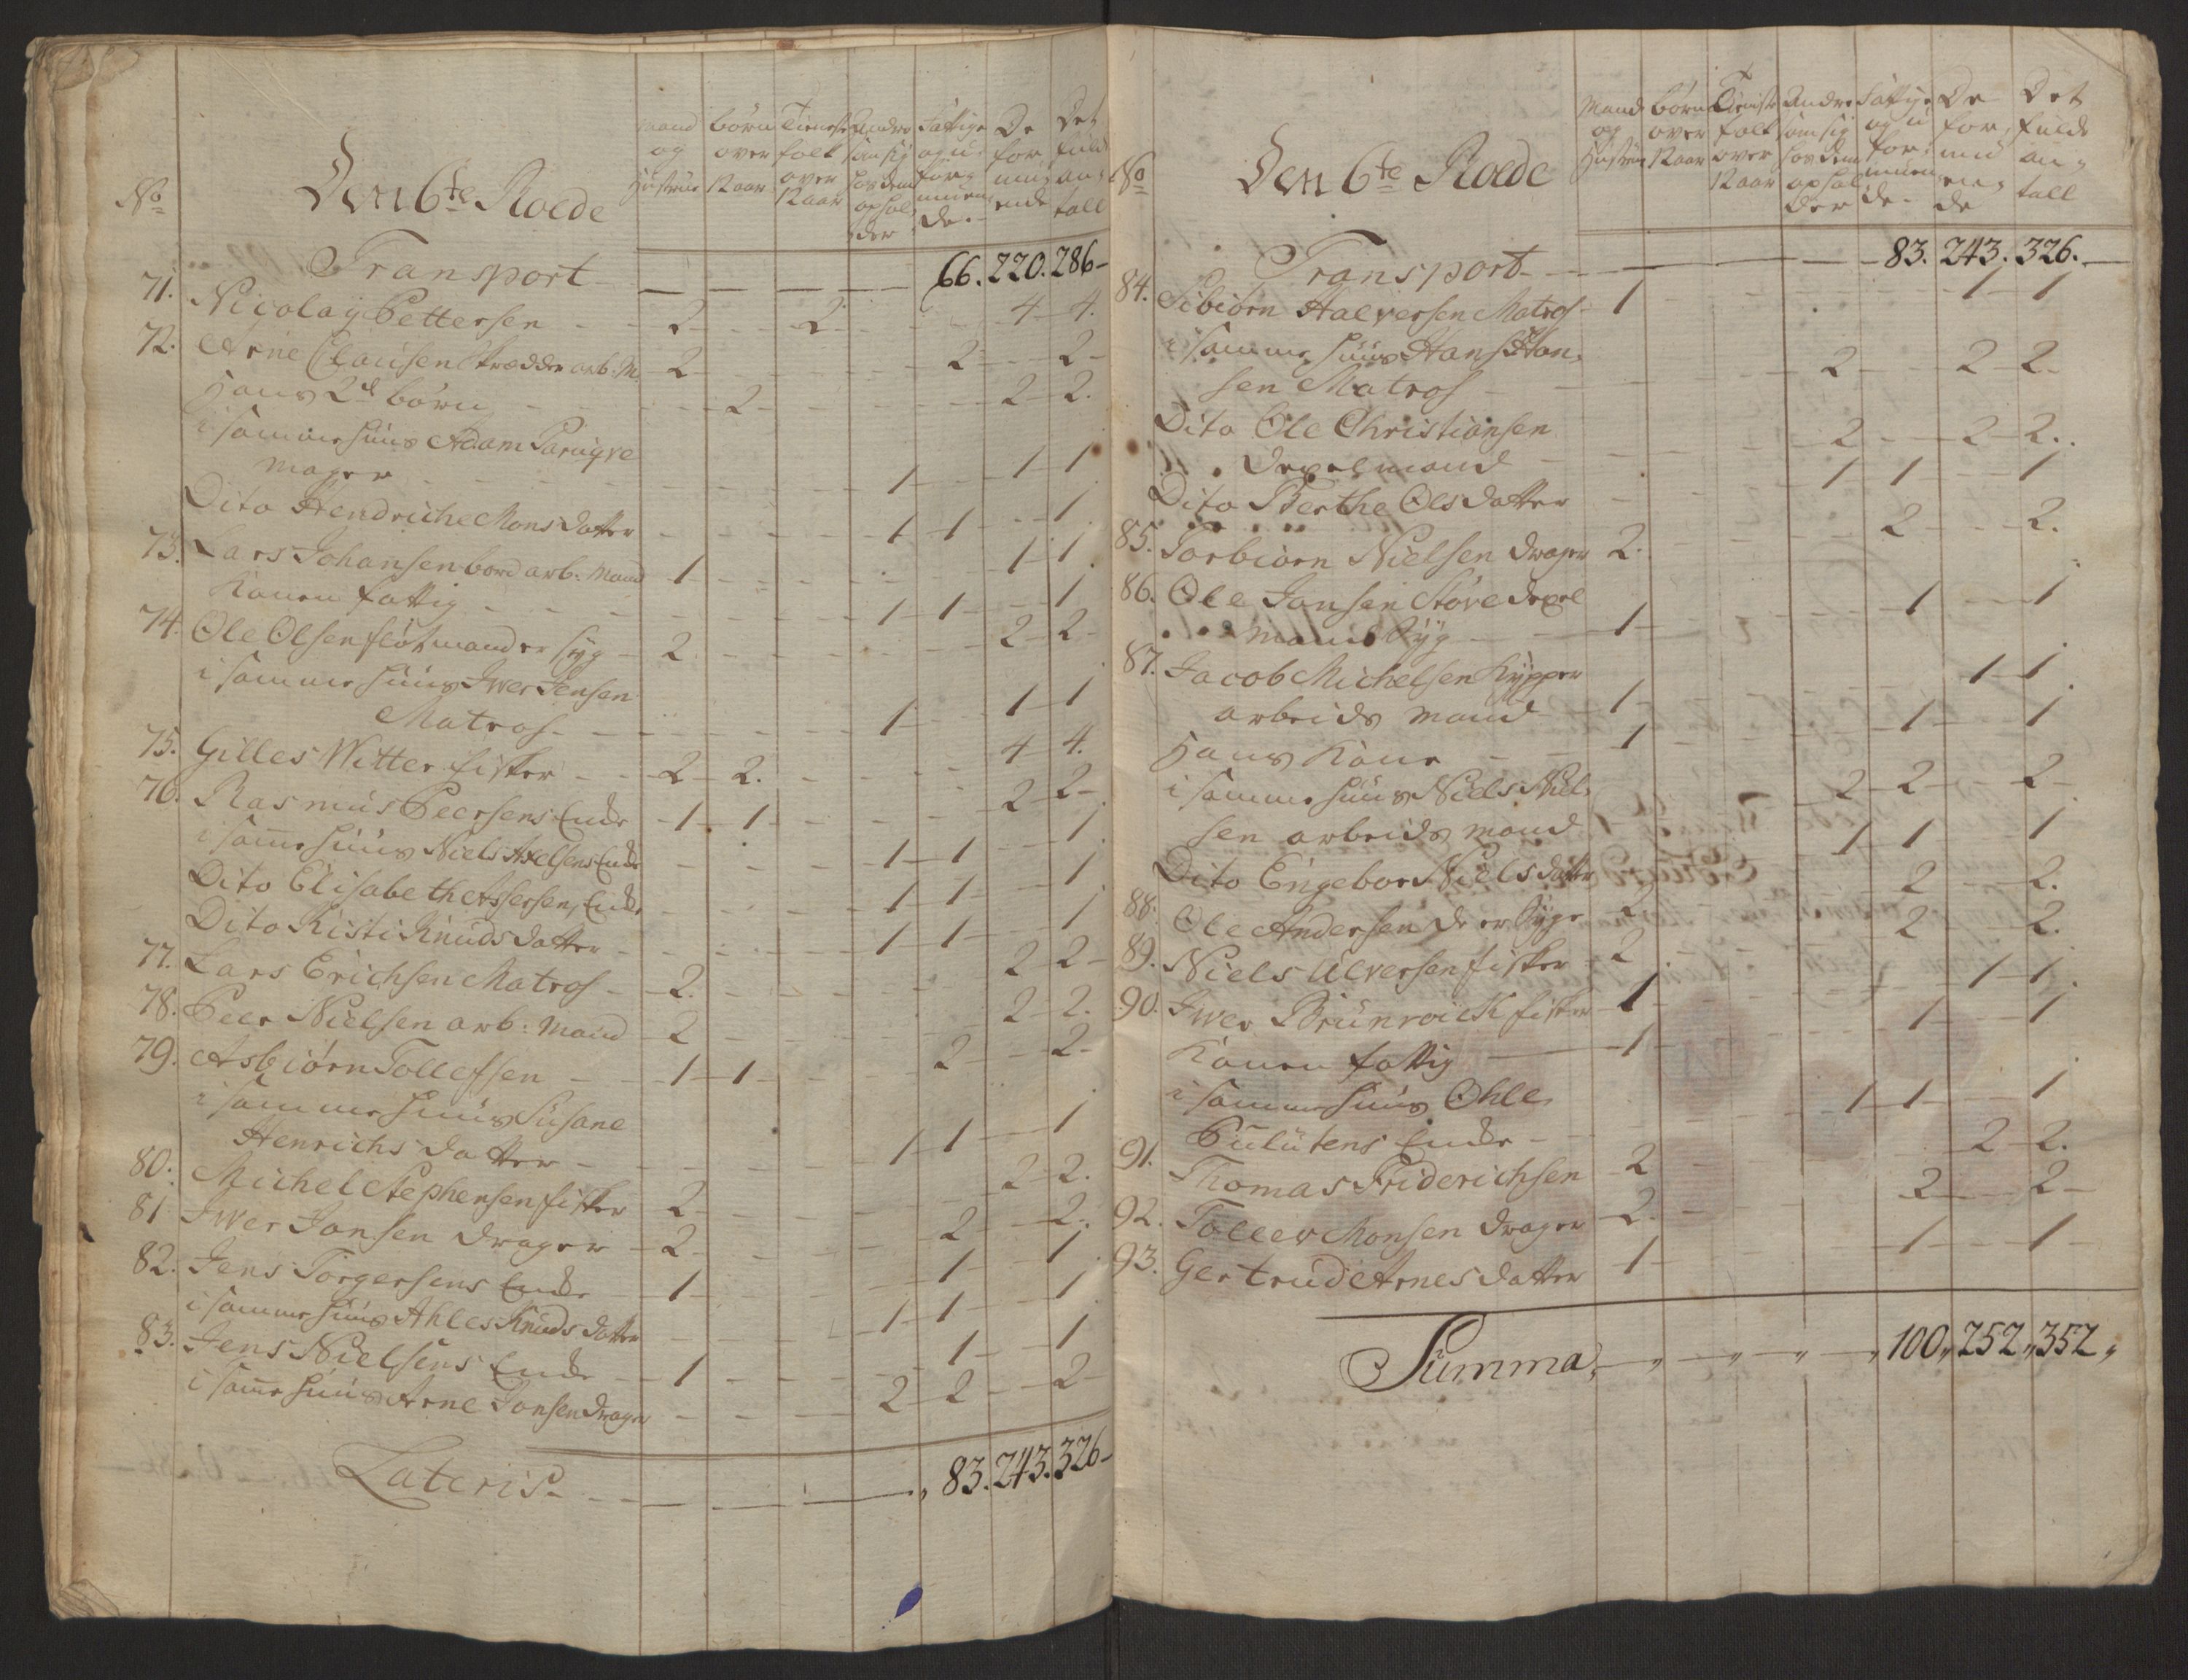 No
Den 6te Roede
Mand og Hustrue
børn over 12 aar
Tieneste folk over 12 aar
Andre som sig hos dem ophol der
Fattige og u formuen de.
De for mu ende
Det fulde an tall
Transport — — — — 66. 220. 286 –
71. Nicolay Pettersen – 2 – 2 – 4 – 4.
72. Arne Clausen Skrædder arb: M. 2 – 2 – 2 –
Hans 2de børn – 2 – 2 – 2.
i samme Huus Adam Paruqve
mager – 1 – 1 – 1
Dito Hendriche Mons datter – 1 – 1 – 1
73. Lars Johansen bord arb: Mand 1 – 1 – 1
Konen fattig – 1 – 1 – 1
74. Ole Olsen fløtmand er syg – 2 – 2 – 2 –
i samme Huus Iver Jensen
Matros – 1 – 1 – 1
75. Gilles Witter fisker – 2 – 2. – 4 – 4.
76. Rasmus Peersens Enke – 1 – 1 – 2 – 2 –
i samme Huus Niels Axelsens Enke – 1 – 1 – 1
Dito Elisabeth Assersen, Enke – 1 – 1 – 1
Dito Kisti Knuds datter – 1 – 1 – 1
77. Lars Erichsen Matros – 2. – 2 – 2 –
78. Peer Nielsen arb: Mand 2 – 2 – 2.
79. Asbiørn Tollefsen – 1 – 1 – 2 – 2 –
i samme Huus Susane
Henrichs datter – 1 – 1 – 1
80. Michel Stephensen fisker 2 – 2 – 2.
81 Iver Jansen drager – 2 – 2 – 2.
82. Jens Torgersens Enke – 1 – 1 – 1
i samme Huus Ahles Knuds datter – 1 – 1 – 1
83. Jens Nielsens Enke – 1 – 1 – 1
i samme Huus Arne Jonsen drager – 2 – 2 – 2 –
Lateris – – — — — 83. 243. 326 –
No
Den 6te Roede
Mand og Hustrue
børn over 12 aar
Tieneste folk over 12 aar
Andre som sig hos dem ophol der
Fattige og u for muen de.
De for mu en de
Det fulde an tall
Transport – — — — 83. 243. 326. —
84. Sibiørn Halversen Matros – 1 – 1 – 1
i samme Huus Hans Han
sen Matros – 2 – 2 – 2.
Dito Ole Christiansen
Dexelmand – 2 – 2 – 2.
Dito Berthe Olsdatter – 1 – 1 – 1
85. Torbiørn Nielsen drager 2. – 2 – 2.
86. Ole Jansen Støre dexel
mand Syg – 1 – 1 – 1
87. Jacob Michelsen Kypper
arbeids mand – 1 – 1 – 1
Hans Kone – 1 – 1 – 1
i samme Huus Niels Niel
sen arbeids mand 2 – 2 – 2 –
Dito Engebor Niels datter 1 – 1 – 1
88. Ole Andersen de er Syge 2 – 2 – 2.
89. Niels Ulversen fisker – 2 – 2 – 2.
90. Iver Brünwick fisker – 1 – 1 – 1
Konen fattig – 1 – 1 – 1
i samme Huus Ohle
Pulutens Enke – 1 – 1 – 1
91. Thomas Friderichsen 2 – 2 – 2.
92. Toller Monsen drager – 2. – 2 – 2 –
93. Gertrud Arnes datter 1 – 1 – 1 –
Summa, — „ — „ — „ — „ 100 „ 252 „ 352 „